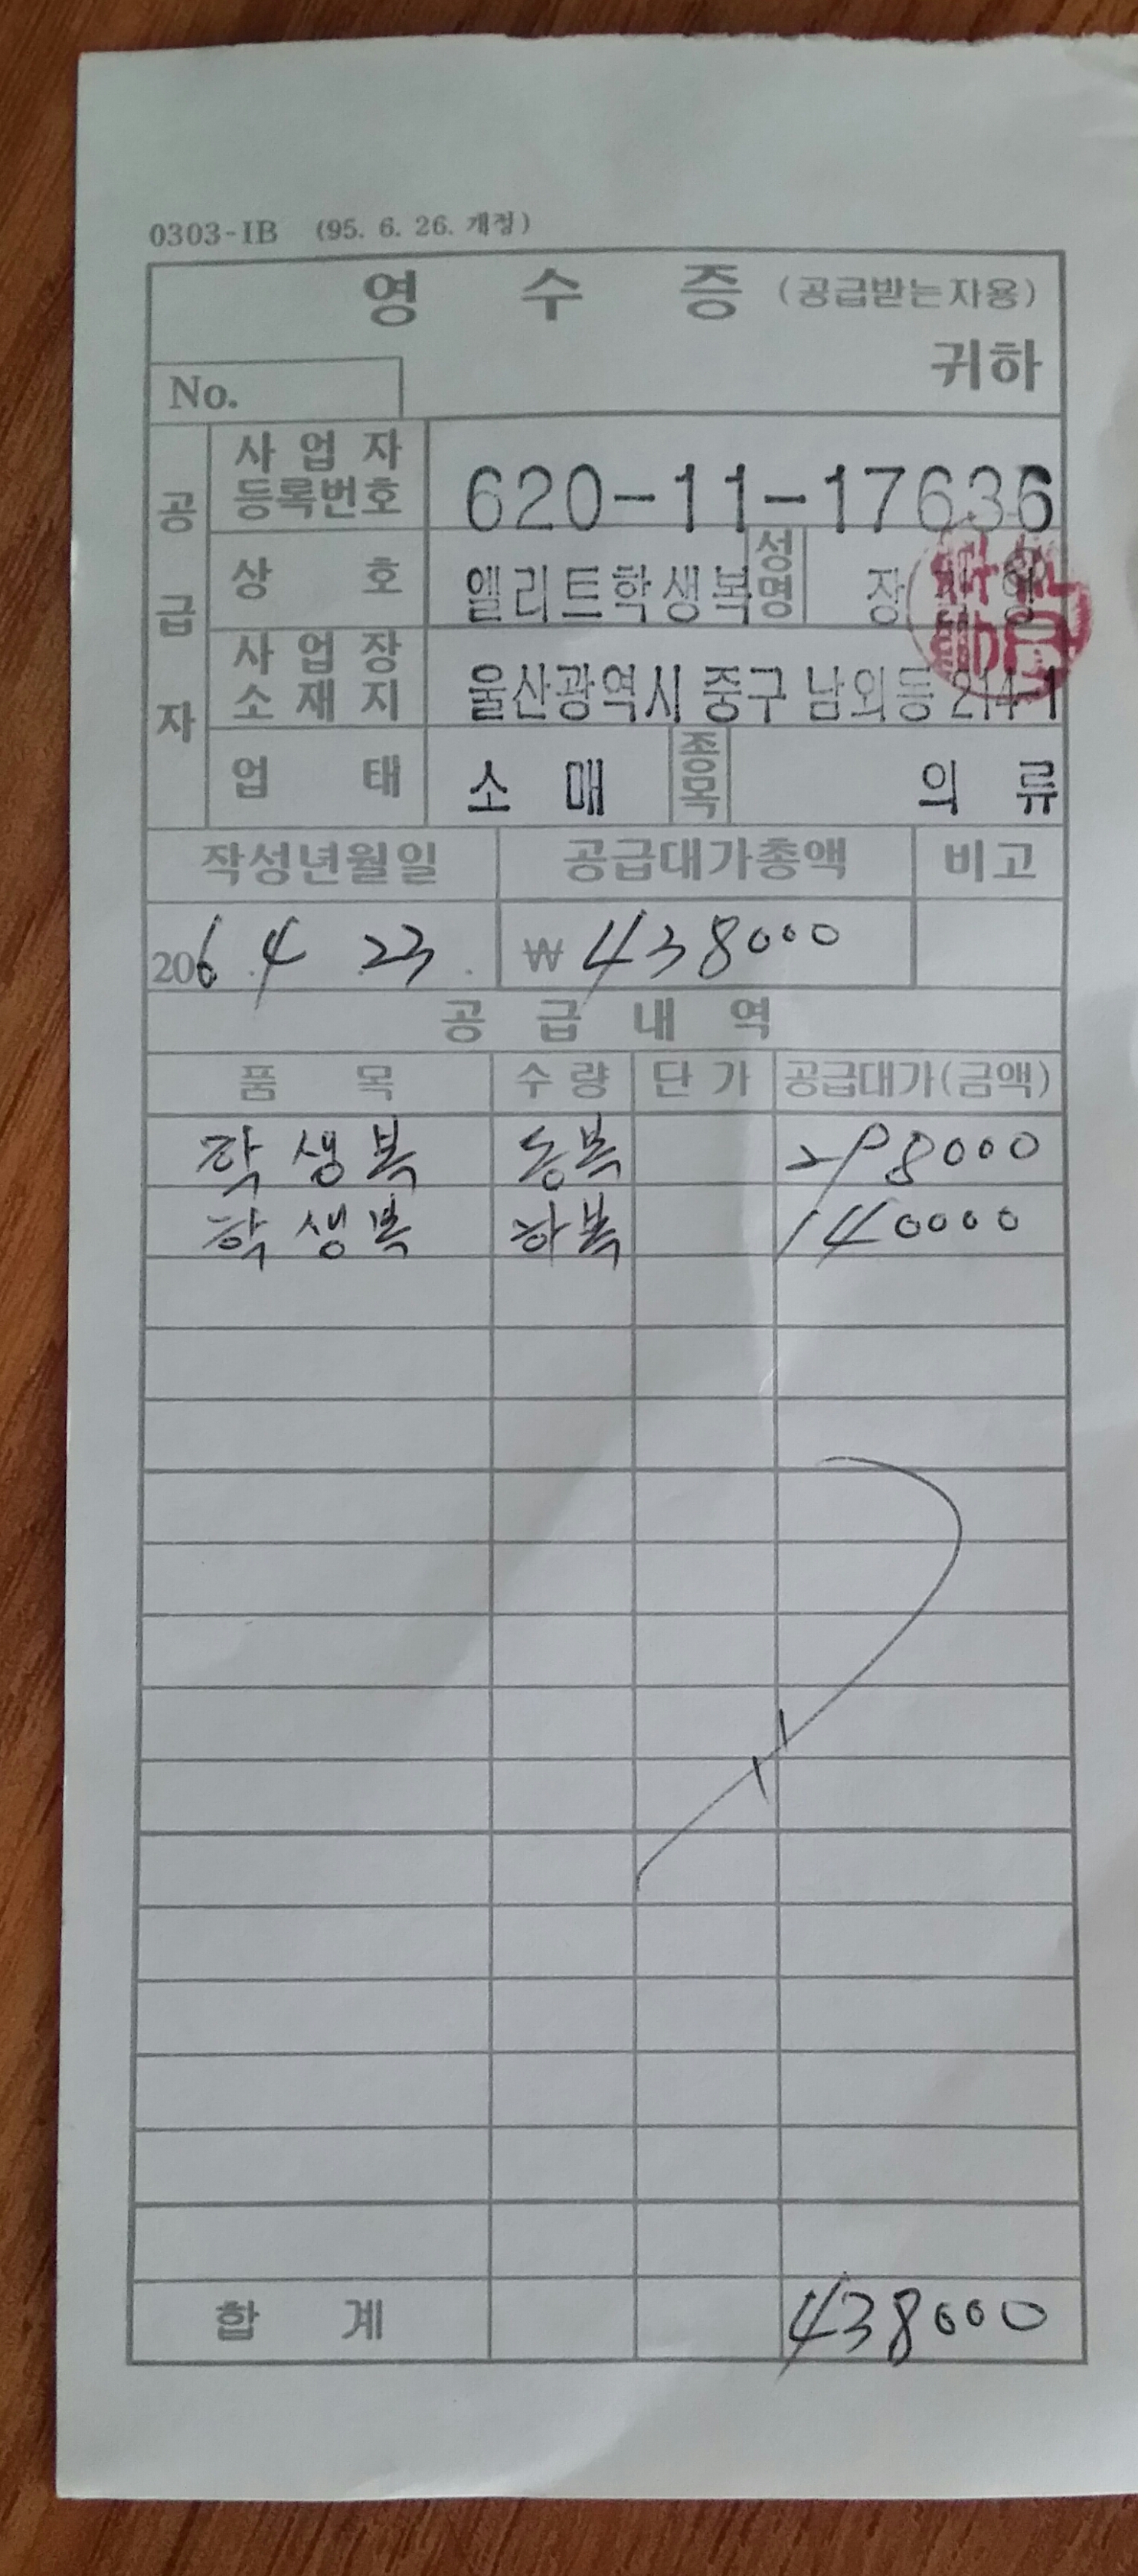 0303-IB (95. 6. 26. 개정)
영 수 증 (공급받는자용)
귀하
No.
공급자
사업자등록번호 620-11-17636
상호 엘리트학생복 성명 장
사업장소재지 울산광역시 중구 남외동 214-1
업태 소매 종목 의류
작성년월일 공급대가총액 비고
206. 4. 23. ₩ 438000
공급내역
품목 수량 단가 공급대가(금액)
학생복 동복 298000
학생복 하복 140000
합계 438000